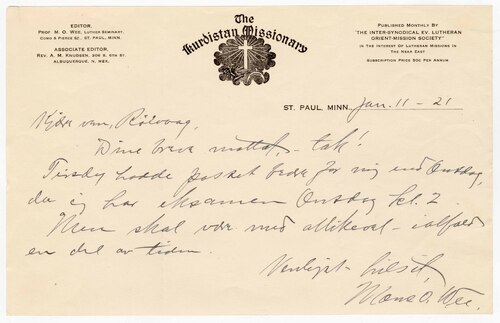 EDITOR.
PROF. M. O. WEE, LUTHER SEMINARY.
COMO & PIERCE SZ., ST. PAUL, MINN.
ASSOCIATE EDITOR.
REV. A. M. KNUDSEN, 306 S. 6TH ST.
ALBUQUERQUE, N. MEX.
The
Kurdistan Missionary
PUBLISHED MONTHLY BY
"THE INTER-SYNODICAL EV. LUTHERAN
ORIENT-MISSION SOCIETY"
IN THE INTEREST OF LUTHERAN MISSIONS IN
THE NEAR EAST
SUBSCRIPTION PRICE 50C PER ANNUM
ST. PAUL, MINN. Jan. 11 - 21
Kjære ven, Rölvaag,
Dine breve mottat, - tak!
Tirsdag hadde passet bedre for mig end Onsdag,
da jeg har eksamen Onsdag kl. 2.
Men skal være med allikevel - ialfald
en del av tiden.
Venligst hilset,
Mons O. Wee.